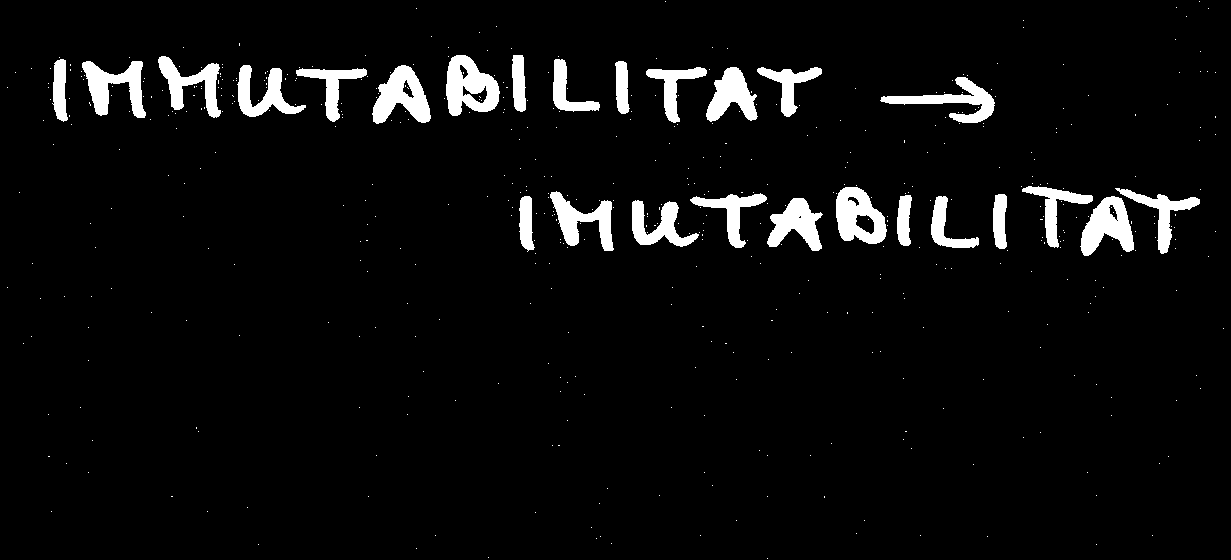 IMMUTABILITAT →
IMUTABILITAT